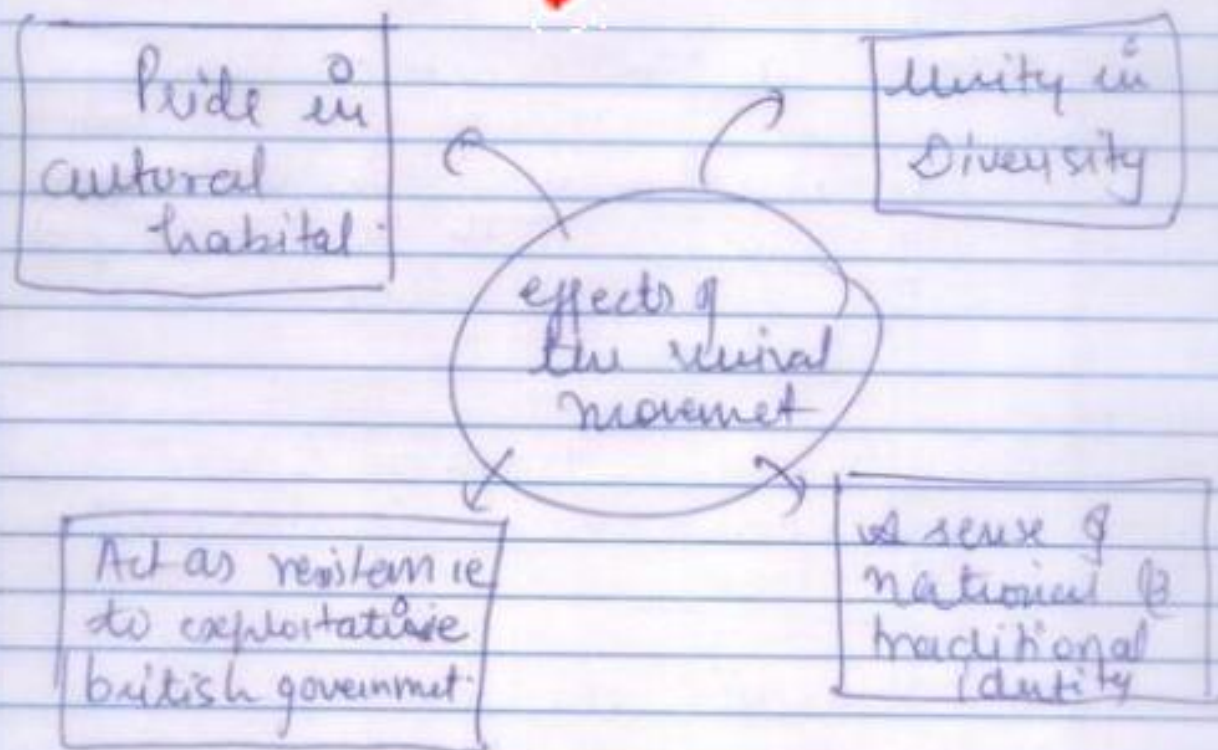 Pride in
cultural
habital
Unity in
Diversity
effects of
the revival
movemet
Act as resistance
to exploitative
british governmet
A sense of
national &
traditional
identity